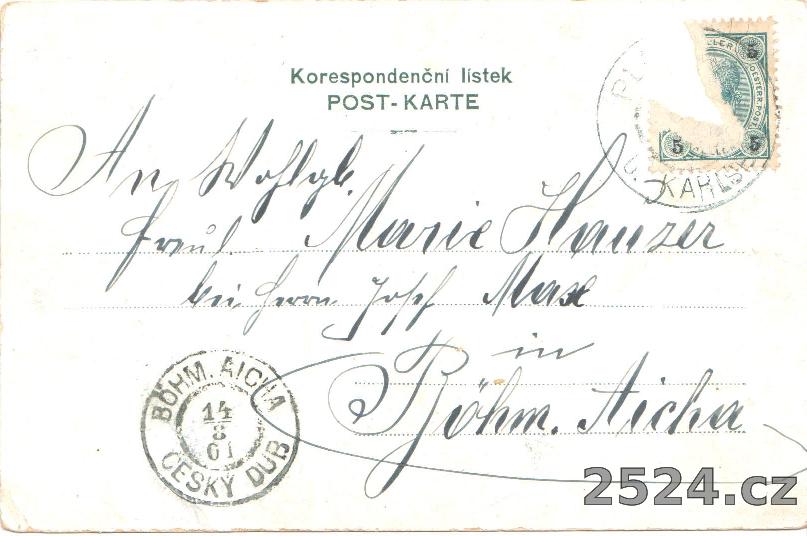 Korespondenční lístek
POST-KARTE
5
5 5
KARLS
An Wohlgb.
Fräul. Marie Hauzer
bei Herrn Josef Max
in
Böhm. Aicha
BÖHM. AICHA
14
8
01
ČESKÝ DUB
2524.cz